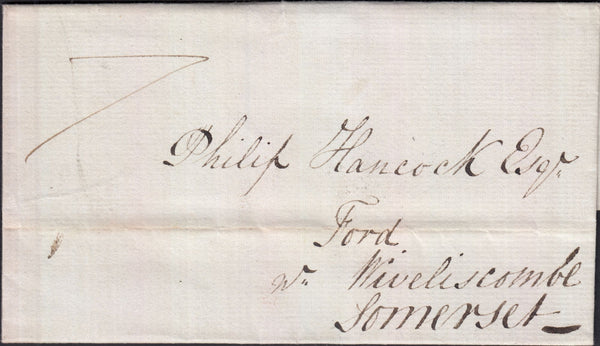 7
Philip Hancock Esqr.
Ford
nr. Wiveliscombe
Somerset